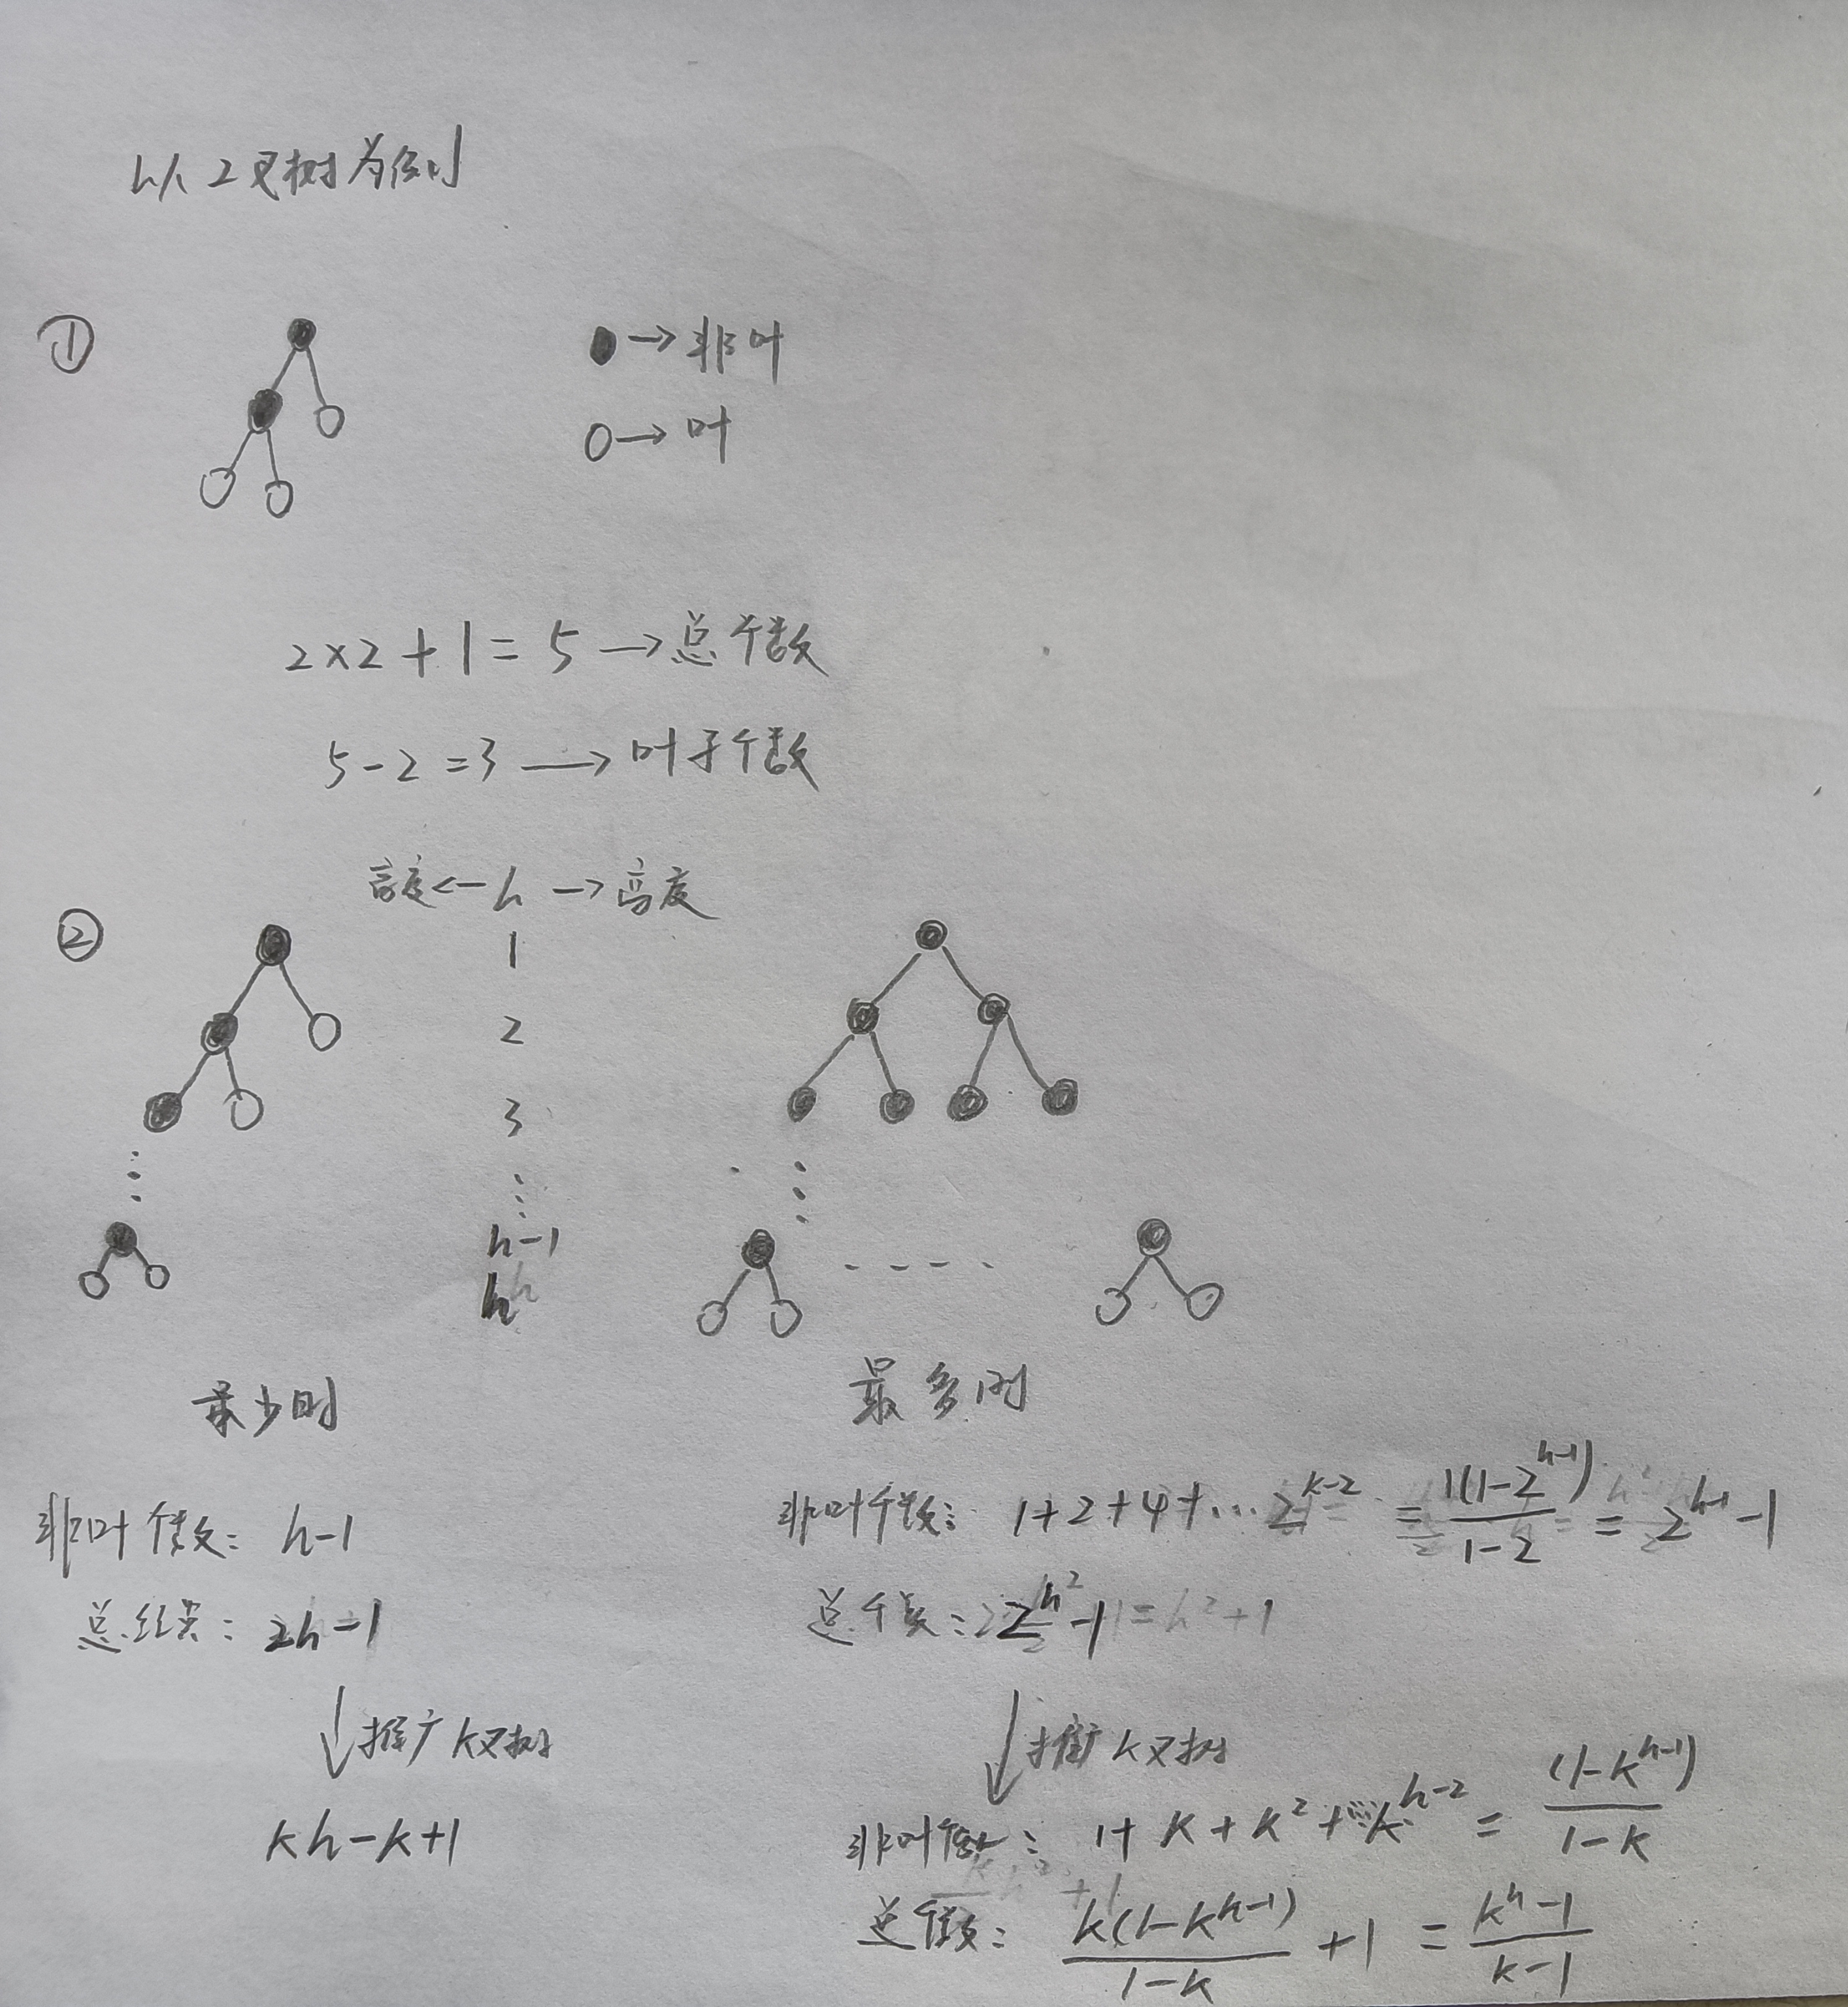 以2叉树为例
① ●→非叶
○→叶
2×2+1=5→总个数
5-2=3→叶子个数
高度←h→高度
②
1
2
3
⋮
h-1
h
最少时
最多时
非叶个数: h-1
总结点: 2h-1
↓推广k叉树
kh-k+1
非叶个数: 1+2+4+…2^{k-2} = \frac{1(1-2^{h-1})}{1-2} = 2^{h-1}-1
总个数: 2^h-1
↓推广k叉树
非叶个数: 1+k+k^2+…k^{h-2} = \frac{(1-k^{h-1})}{1-k}
总个数: \frac{k(1-k^{h-1})}{1-k}+1 = \frac{k^h-1}{k-1}